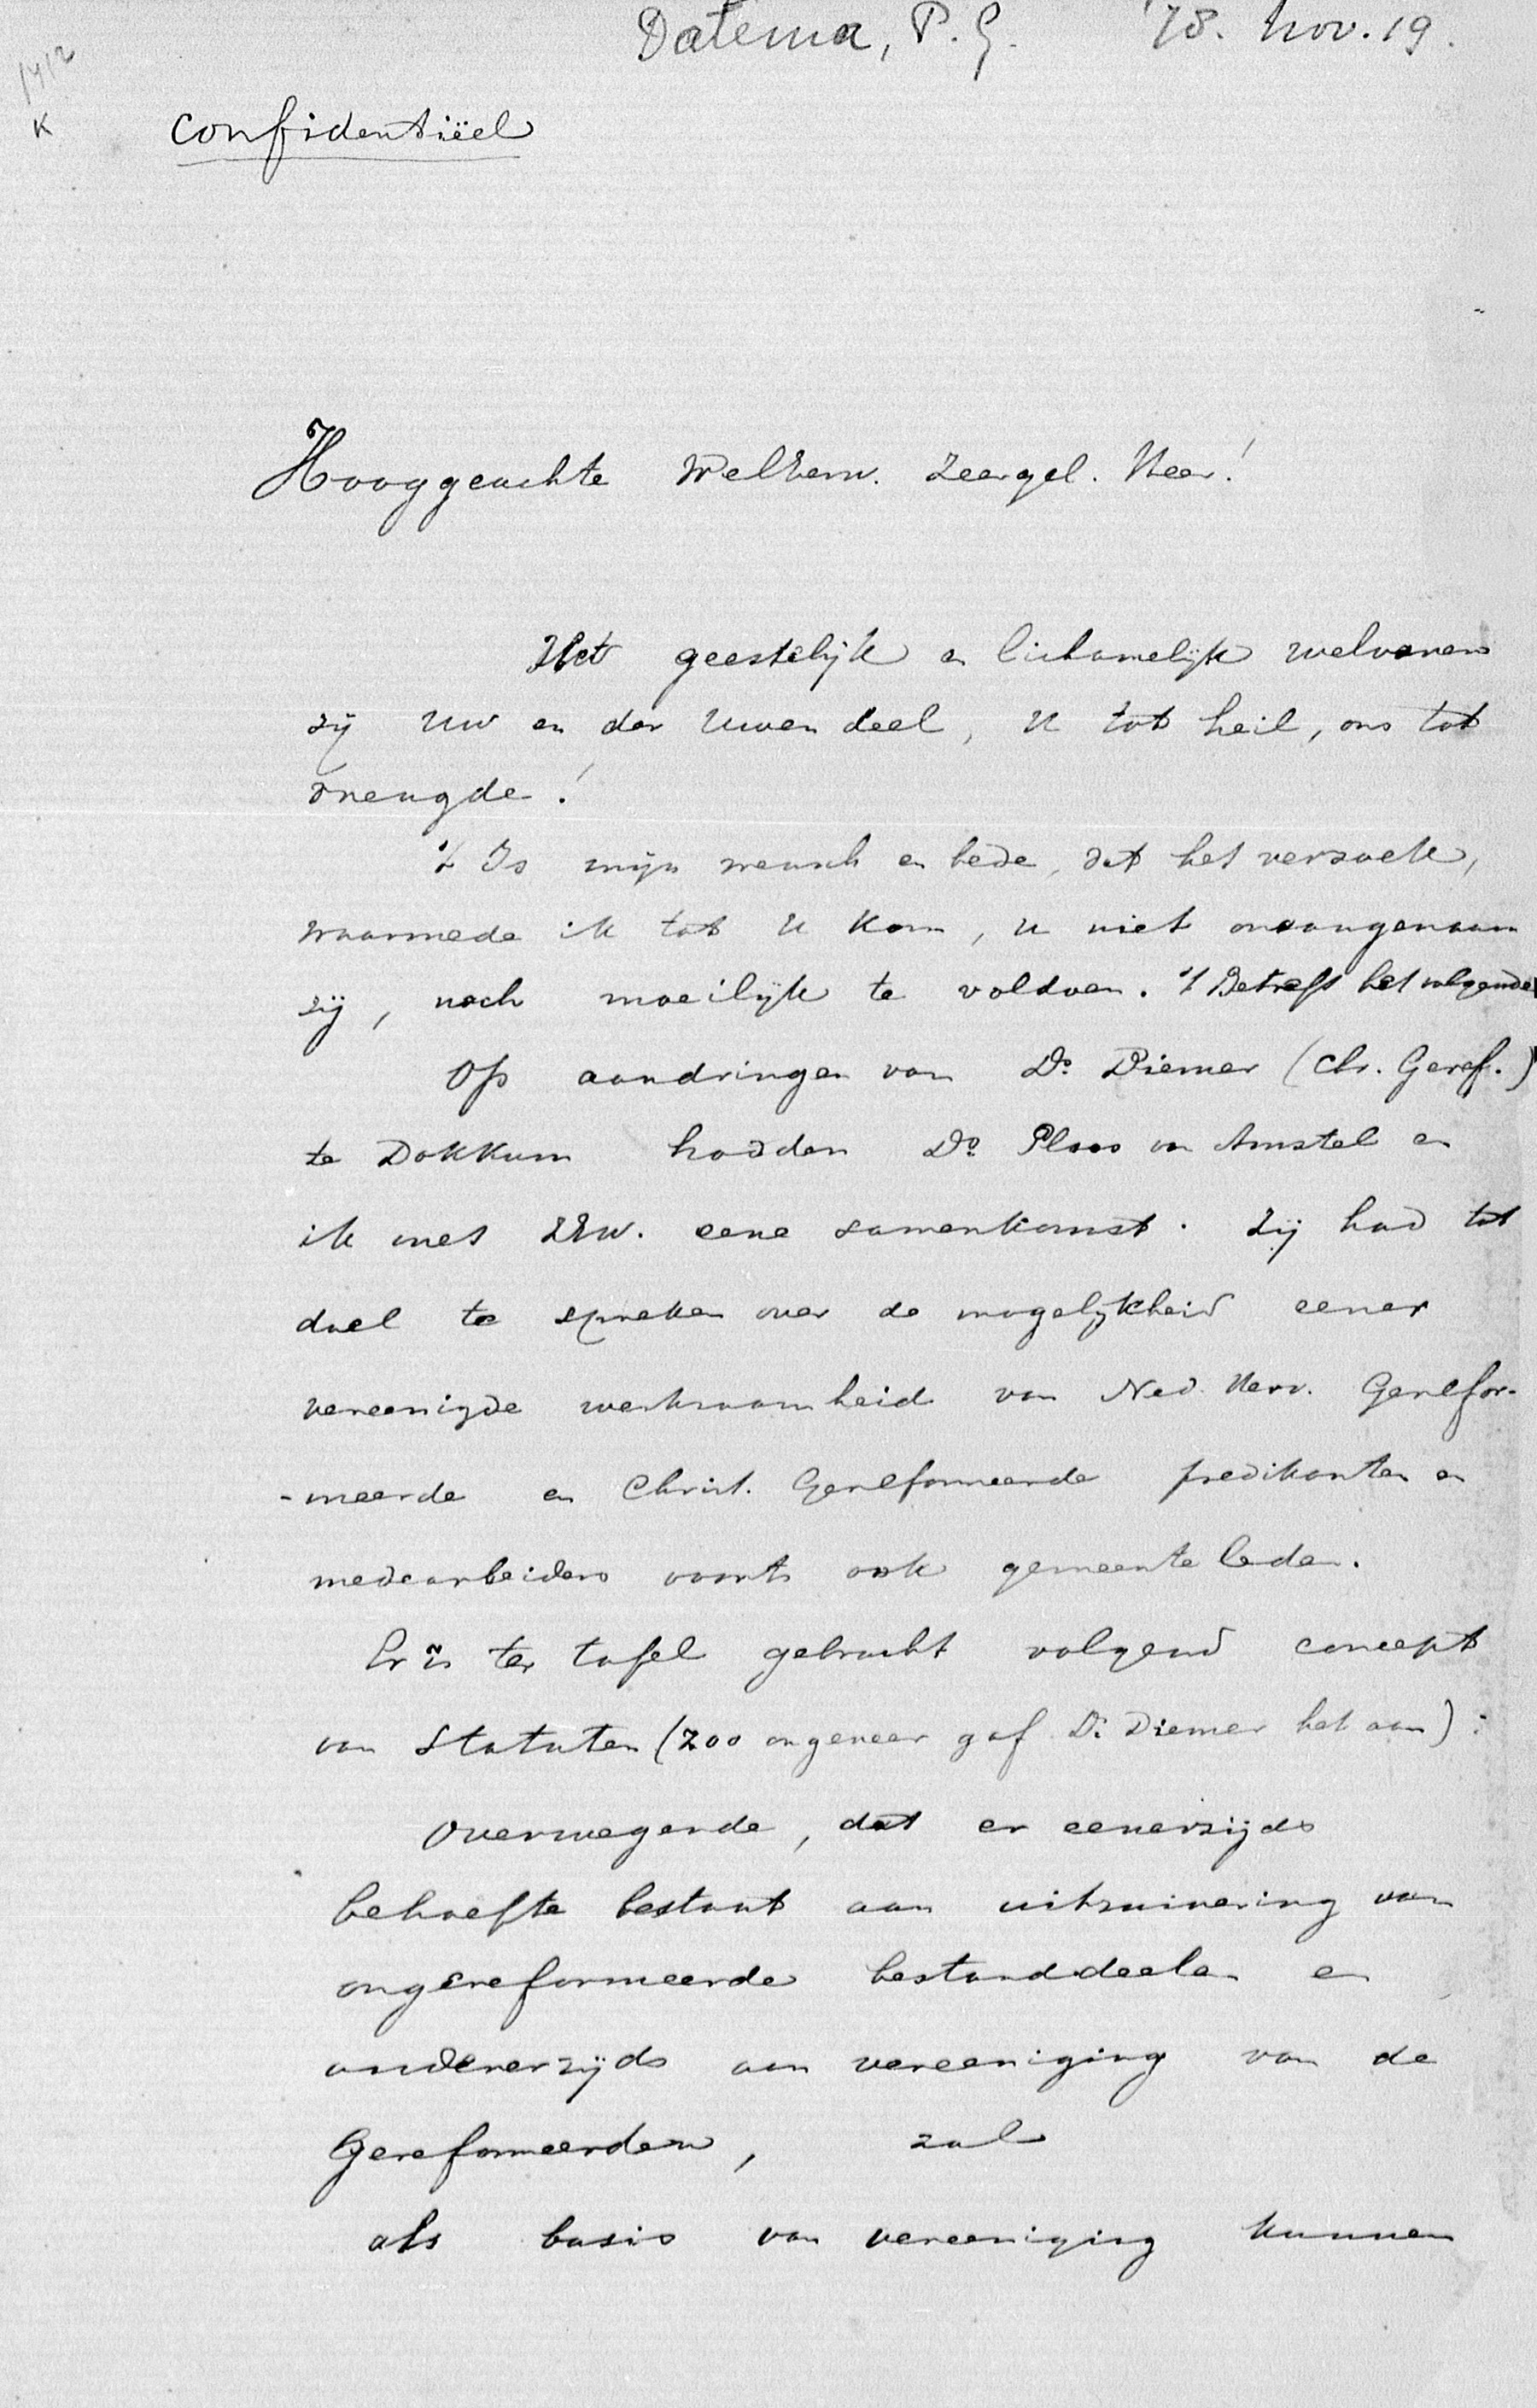 Datema, P. G. '78. Nov. 19.
1412
K
Confidentiëel
Hooggeachte WelEerw. Zeergel. Heer!
Het geestelijk en lichamelijk welvaren
zij Uw en der Uwen deel, U tot heil, ons tot
vreugde!
't Is mijn wensch en bede, dat het verzoek,
waarmede ik tot U kom, U niet onaangenaam
zij, noch moeilijk te voldoen. 't Betreft het volgende
Op aandringen van Ds. Diemer (Chr. Geref.)
te Dokkum hadden Ds. Ploos van Amstel en
ik met ZEw. eene samenkomst. Zij had tot
doel te spreken over de mogelijkheid eener
vereenigde werkzaamheid van Ned. Herv. Gerefor-
-meerde en Christ. Gereformeerde predikanten en
medearbeiders voorts ook gemeente leden.
Er is ter tafel gebracht volgend concept
van Statuten (zoo ongeveer gaf Ds. Diemer het aan):
Overwegende, dat er eenerzijds
behoefte bestaat aan uitzuivering van
ongereformeerde bestanddeelen en
andererzijds aan vereeniging van de
Gereformeerden, zal
als basis van vereeniging kunnen